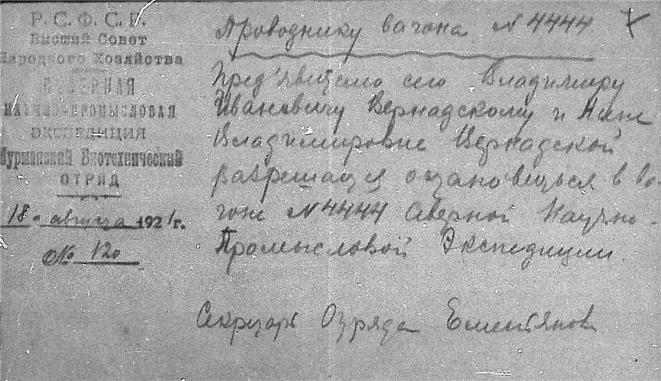 Р.С.Ф.С.Р.
Высший Совет
Народного Хозяйства
СЕВЕРНАЯ
НАУЧНО-ПРОМЫСЛОВАЯ
ЭКСПЕДИЦИЯ
Мурманский Биотехнический
ОТРЯД
18 " августа 1921 г.
№ 120
Проводнику вагона N 4444
Пред'явителю сего Владимиру
Ивановичу Вернадскому и Нине
Владимировне Вернадской
разрешается остановиться в ва-
гоне N 4444 Северной Научно-
Промысловой Экспедиции.
Секретарь Отряда Емельянов